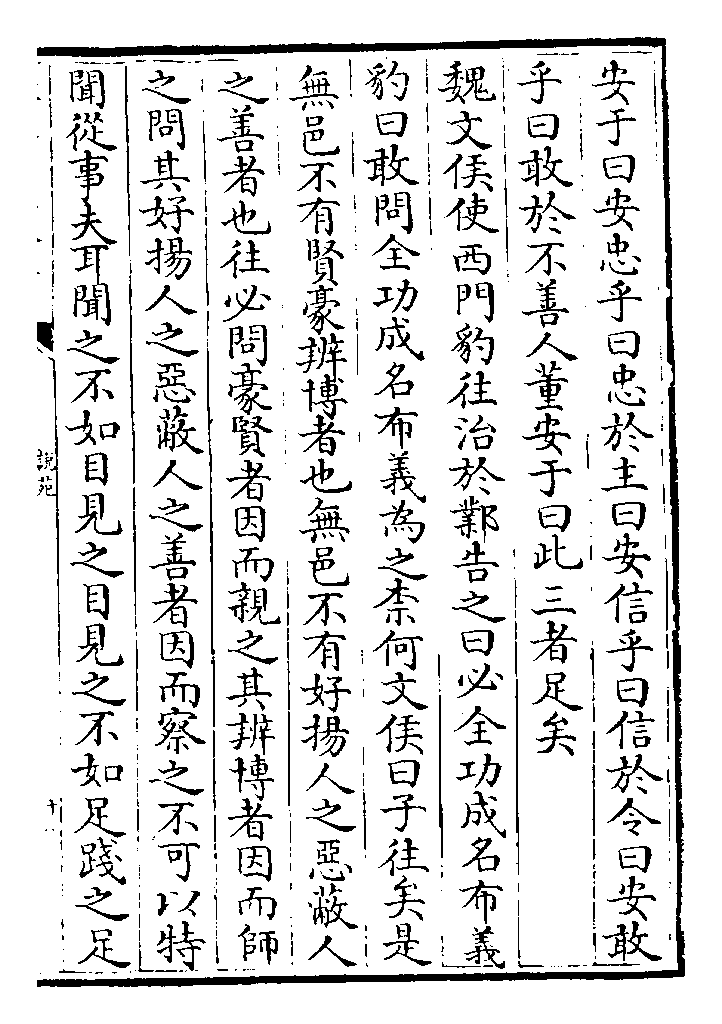 安于曰安忠乎曰忠於主曰安信乎曰信於令曰安敢
乎曰敢於不善人董安于曰此三者足矣
魏文侯使西門豹往治於鄴告之曰必全功成名布義
豹曰敢問全功成名布義為之柰何文侯曰子往矣是
無邑不有賢豪辨博者也無邑不有好揚人之惡蔽人
之善者也往必問豪賢者因而親之其辨博者因而師
之問其好揚人之惡蔽人之善者因而察之不可以特
聞從事夫耳聞之不如目見之目見之不如足踐之足
說苑